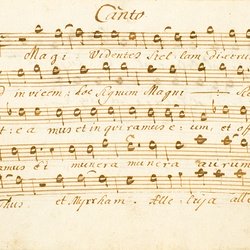 Canto
Magi Videntes Stel lam dixerunt
ad invicem: hoc signum Magni
et; ea mus et in qui ramus e: um, et
ramus ei munera munera aurum
thus et Myrrham. Alle: luja alle